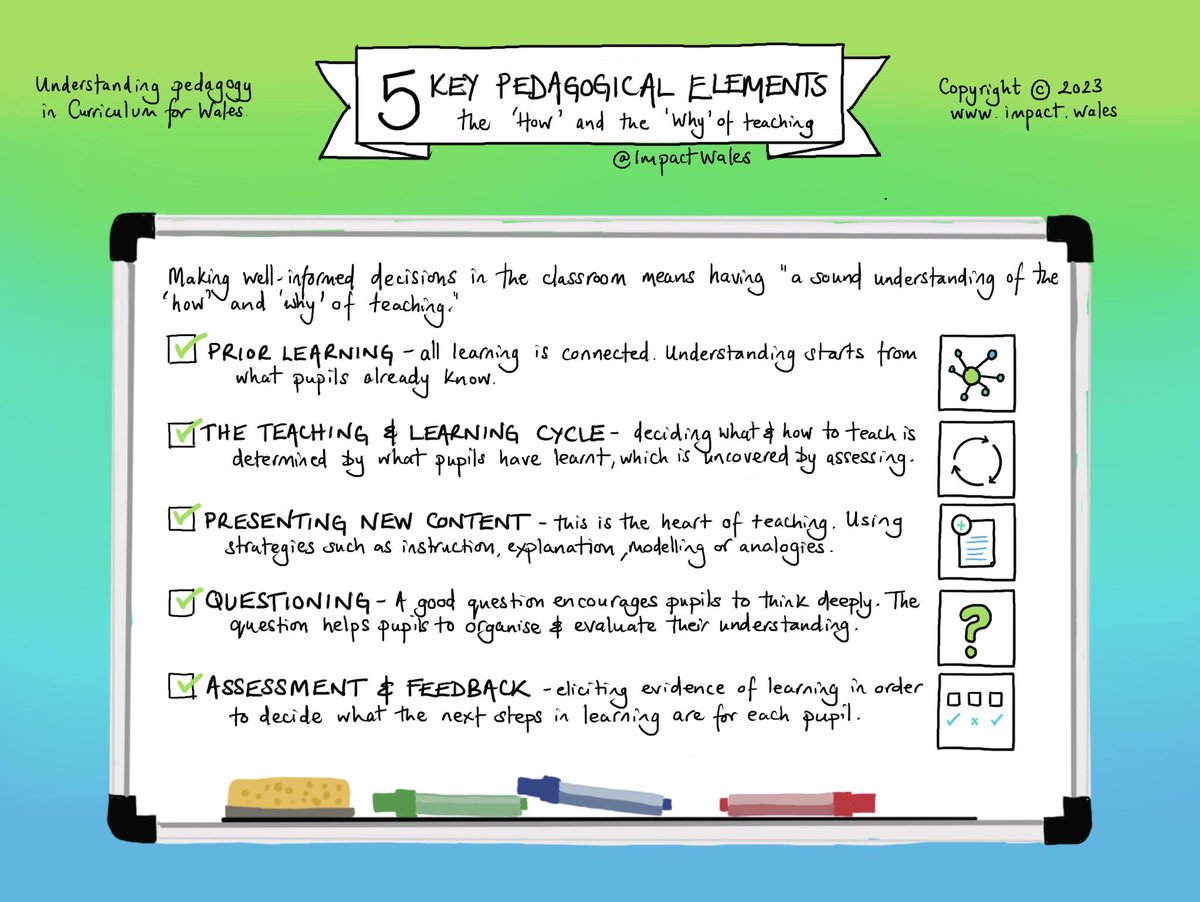 Understanding pedagogy
in Curriculum for Wales.
5 KEY PEDAGOGICAL ELEMENTS
the 'How' and the 'Why' of teaching
@ImpactWales
Copyright © 2023
www.impact.wales
Making well-informed decisions in the classroom means having "a sound understanding of the
'how' and 'why' of teaching."
PRIOR LEARNING – all learning is connected. Understanding starts from
what pupils already know.
THE TEACHING & LEARNING CYCLE – deciding what & how to teach is
determined by what pupils have learnt, which is uncovered by assessing.
PRESENTING NEW CONTENT – this is the heart of teaching. Using
strategies such as instruction, explanation, modelling or analogies.
QUESTIONING – A good question encourages pupils to think deeply. The
question helps pupils to organise & evaluate their understanding.
?
ASSESSMENT & FEEDBACK – eliciting evidence of learning in order
to decide what the next steps in learning are for each pupil.